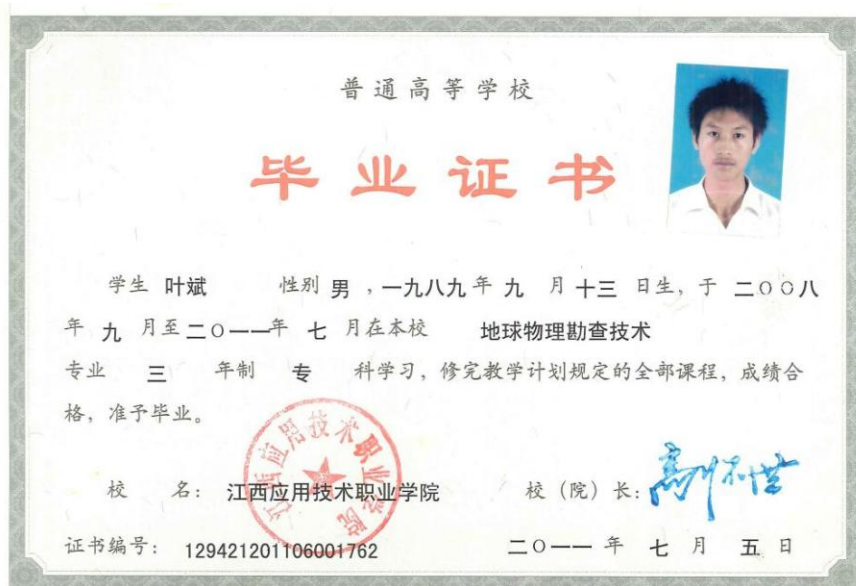 普通高等学校
毕业证书
学生 叶斌 性别 男 ，一九八九 年 九 月 十三 日生，于 二〇〇八
年 九 月至 二〇一一 年 七 月在本校 地球物理勘查技术
专业 三 年制 专 科学习，修完教学计划规定的全部课程，成绩合
格，准予毕业。
江西应用技术职业学院
校 名： 江西应用技术职业学院 校（院）长：
证书编号： 129421201106001762 二〇一一 年 七 月 五 日